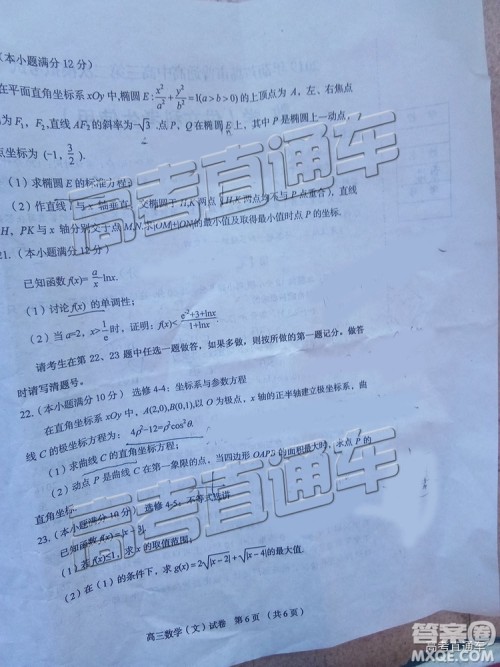 (本小题满分12分)
在平面直角坐标系xOy中,椭圆E:x²/a²+y²/b²=1(a>b>0)的上顶点为A,左、右焦点
为F₁,F₂,直线AF₂的斜率为-√3,点P、Q在椭圆E上,其中P是椭圆上一动点,
点坐标为(-1,3/2).
(1)求椭圆E的标准方程;
(2)作直线l与x轴垂直,交椭圆于H,K两点(H,K两点均不与P点重合),直线
H,PK与x轴分别交于点M,N,求|OM|+|ON|的最小值及取得最小值时点P的坐标.
21.(本小题满分12分)
已知函数f(x)=a/x-lnx.
(1)讨论f(x)的单调性;
(2)当a=2,x>1/e时,证明:f(x)<
请考生在第22、23题中任选一题做答,如果多做,则按所做的第一题记分,做答
时请写清题号。
22.(本小题满分10分)选修4-4:坐标系与参数方程
在直角坐标系xOy中,A(2,0),B(0,1),以O为极点,x轴的正半轴建立极坐标系,曲
线C的极坐标方程为:4ρ²-12=ρ²cos²θ.
(1)求曲线C的直角坐标方程;
(2)动点P是曲线C在第一象限的点,当四边形OAPB的面积最大时,求点P的
直角坐标.
23.(本小题满分10分)选修4-5:不等式选讲
已知函数f(x)=|x-3|.
(1)若f(x)≤1,求x的取值范围;
(2)在(1)的条件下,求g(x)=2√|x-2|+√|x-4|的最大值.
高三数学(文)试卷 第6页(共6页)
高考直通车
高考直通车
高考直通车
答案圈
MXQE.COM